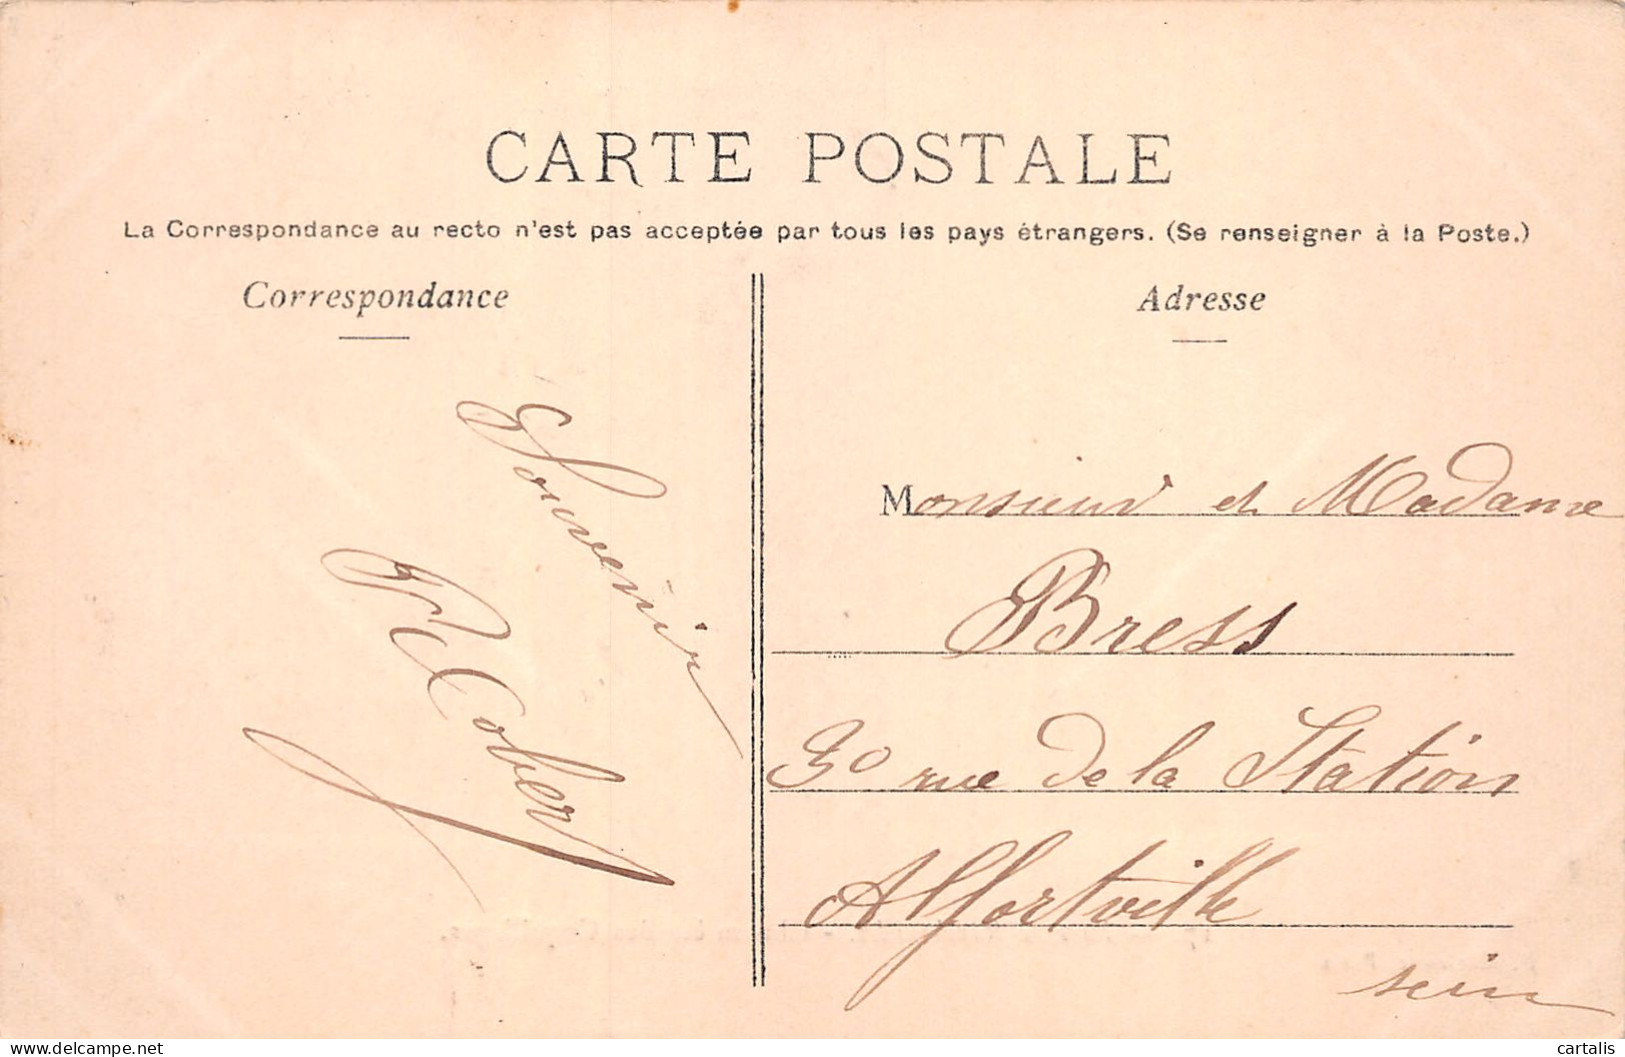 CARTE POSTALE
La Correspondance au recto n'est pas acceptée par tous les pays étrangers. (Se renseigner à la Poste.)
Correspondance
Souvenir
Adresse
Monsieur et Madame
Bress
30 rue de la Station
Alfortville
sein
delcampe.net
cartalis